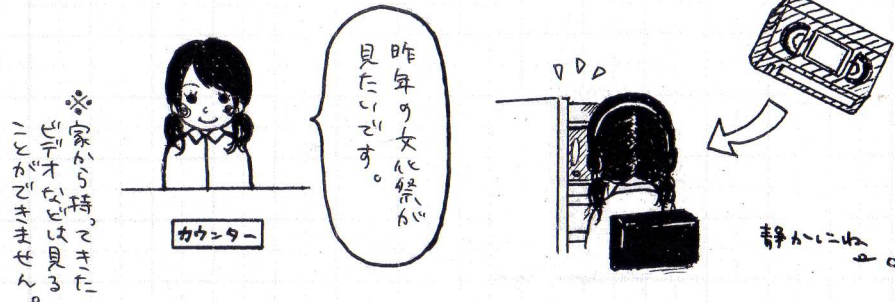 昨年の文化祭が
見たいです。
カウンター
※家から持ってきた
ビデオなどは見る
ことができません。
静かにね